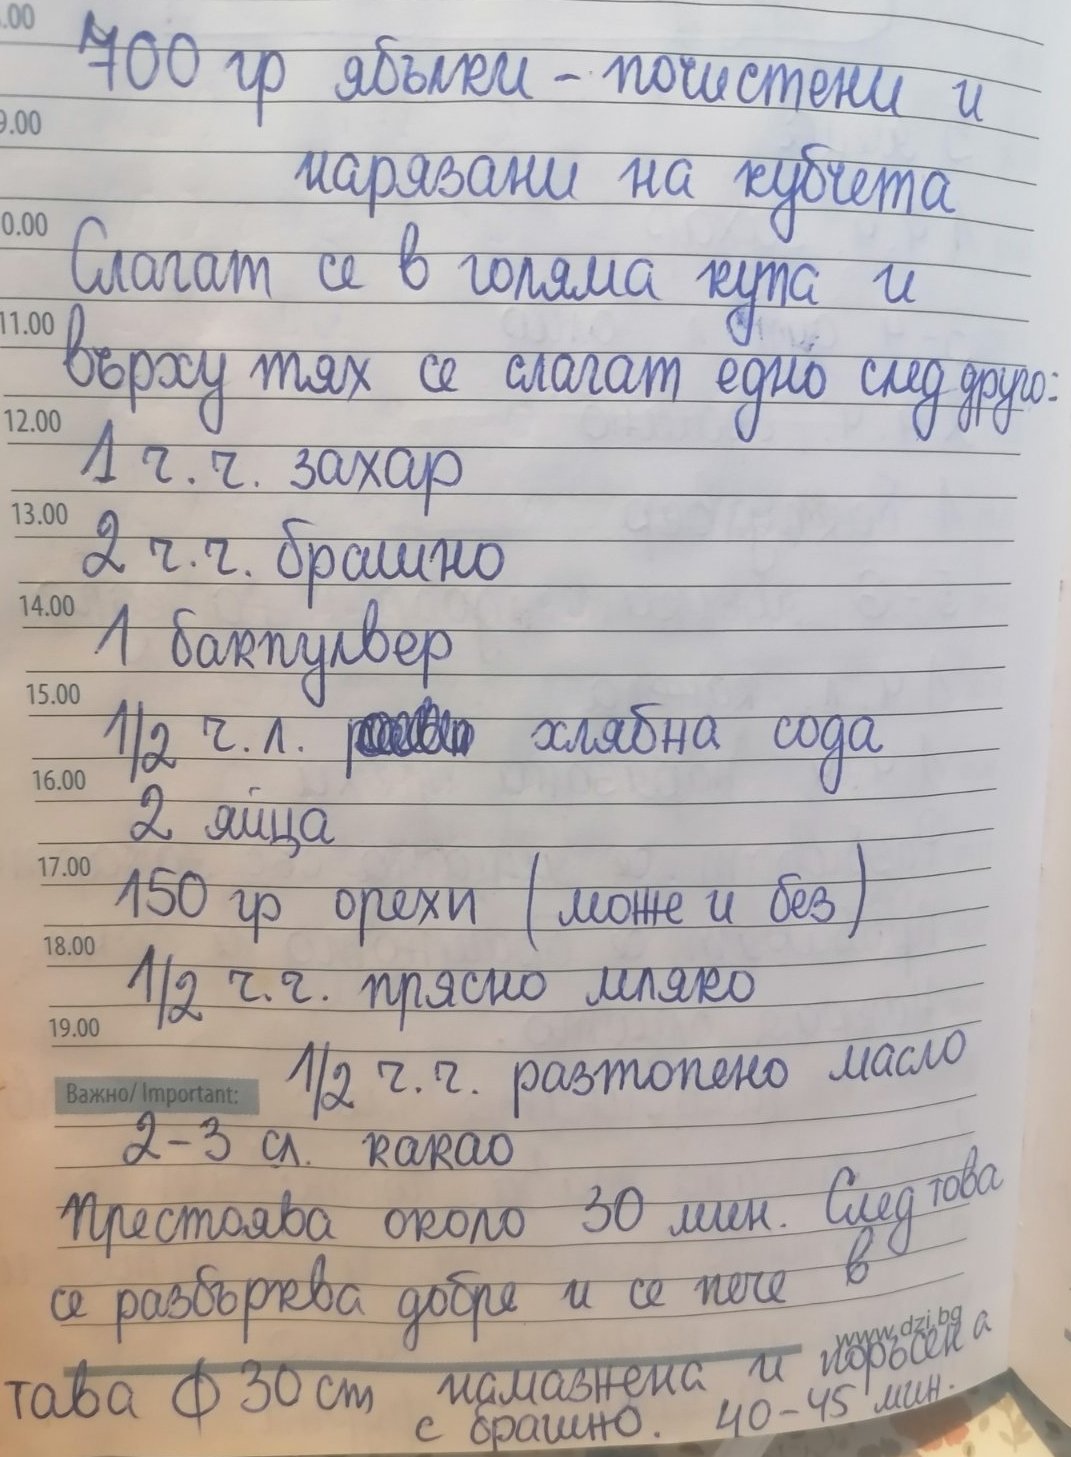 .00
700 гр ябълки - почистени и
9.00
нарязани на кубчета
0.00
Слагат се в голяма купа и
11.00
върху тях се слагат едно след друго:
12.00
1 ч.ч. захар
13.00
2 ч.ч. брашно
14.00
1 бакпулвер
15.00
1/2 ч.л. хлябна сода
16.00
2 яйца
17.00
150 гр орехи (може и без)
18.00
1/2 ч.ч. прясно мляко
19.00
1/2 ч.ч. разтопено масло
Важно/ Important:
2-3 сл. какао
Престоява около 30 мин. След това
се разбърква добре и се пече в
www.dzi.bg
тава ф 30 cm намазнена и поръсена
с брашно. 40-45 мин.